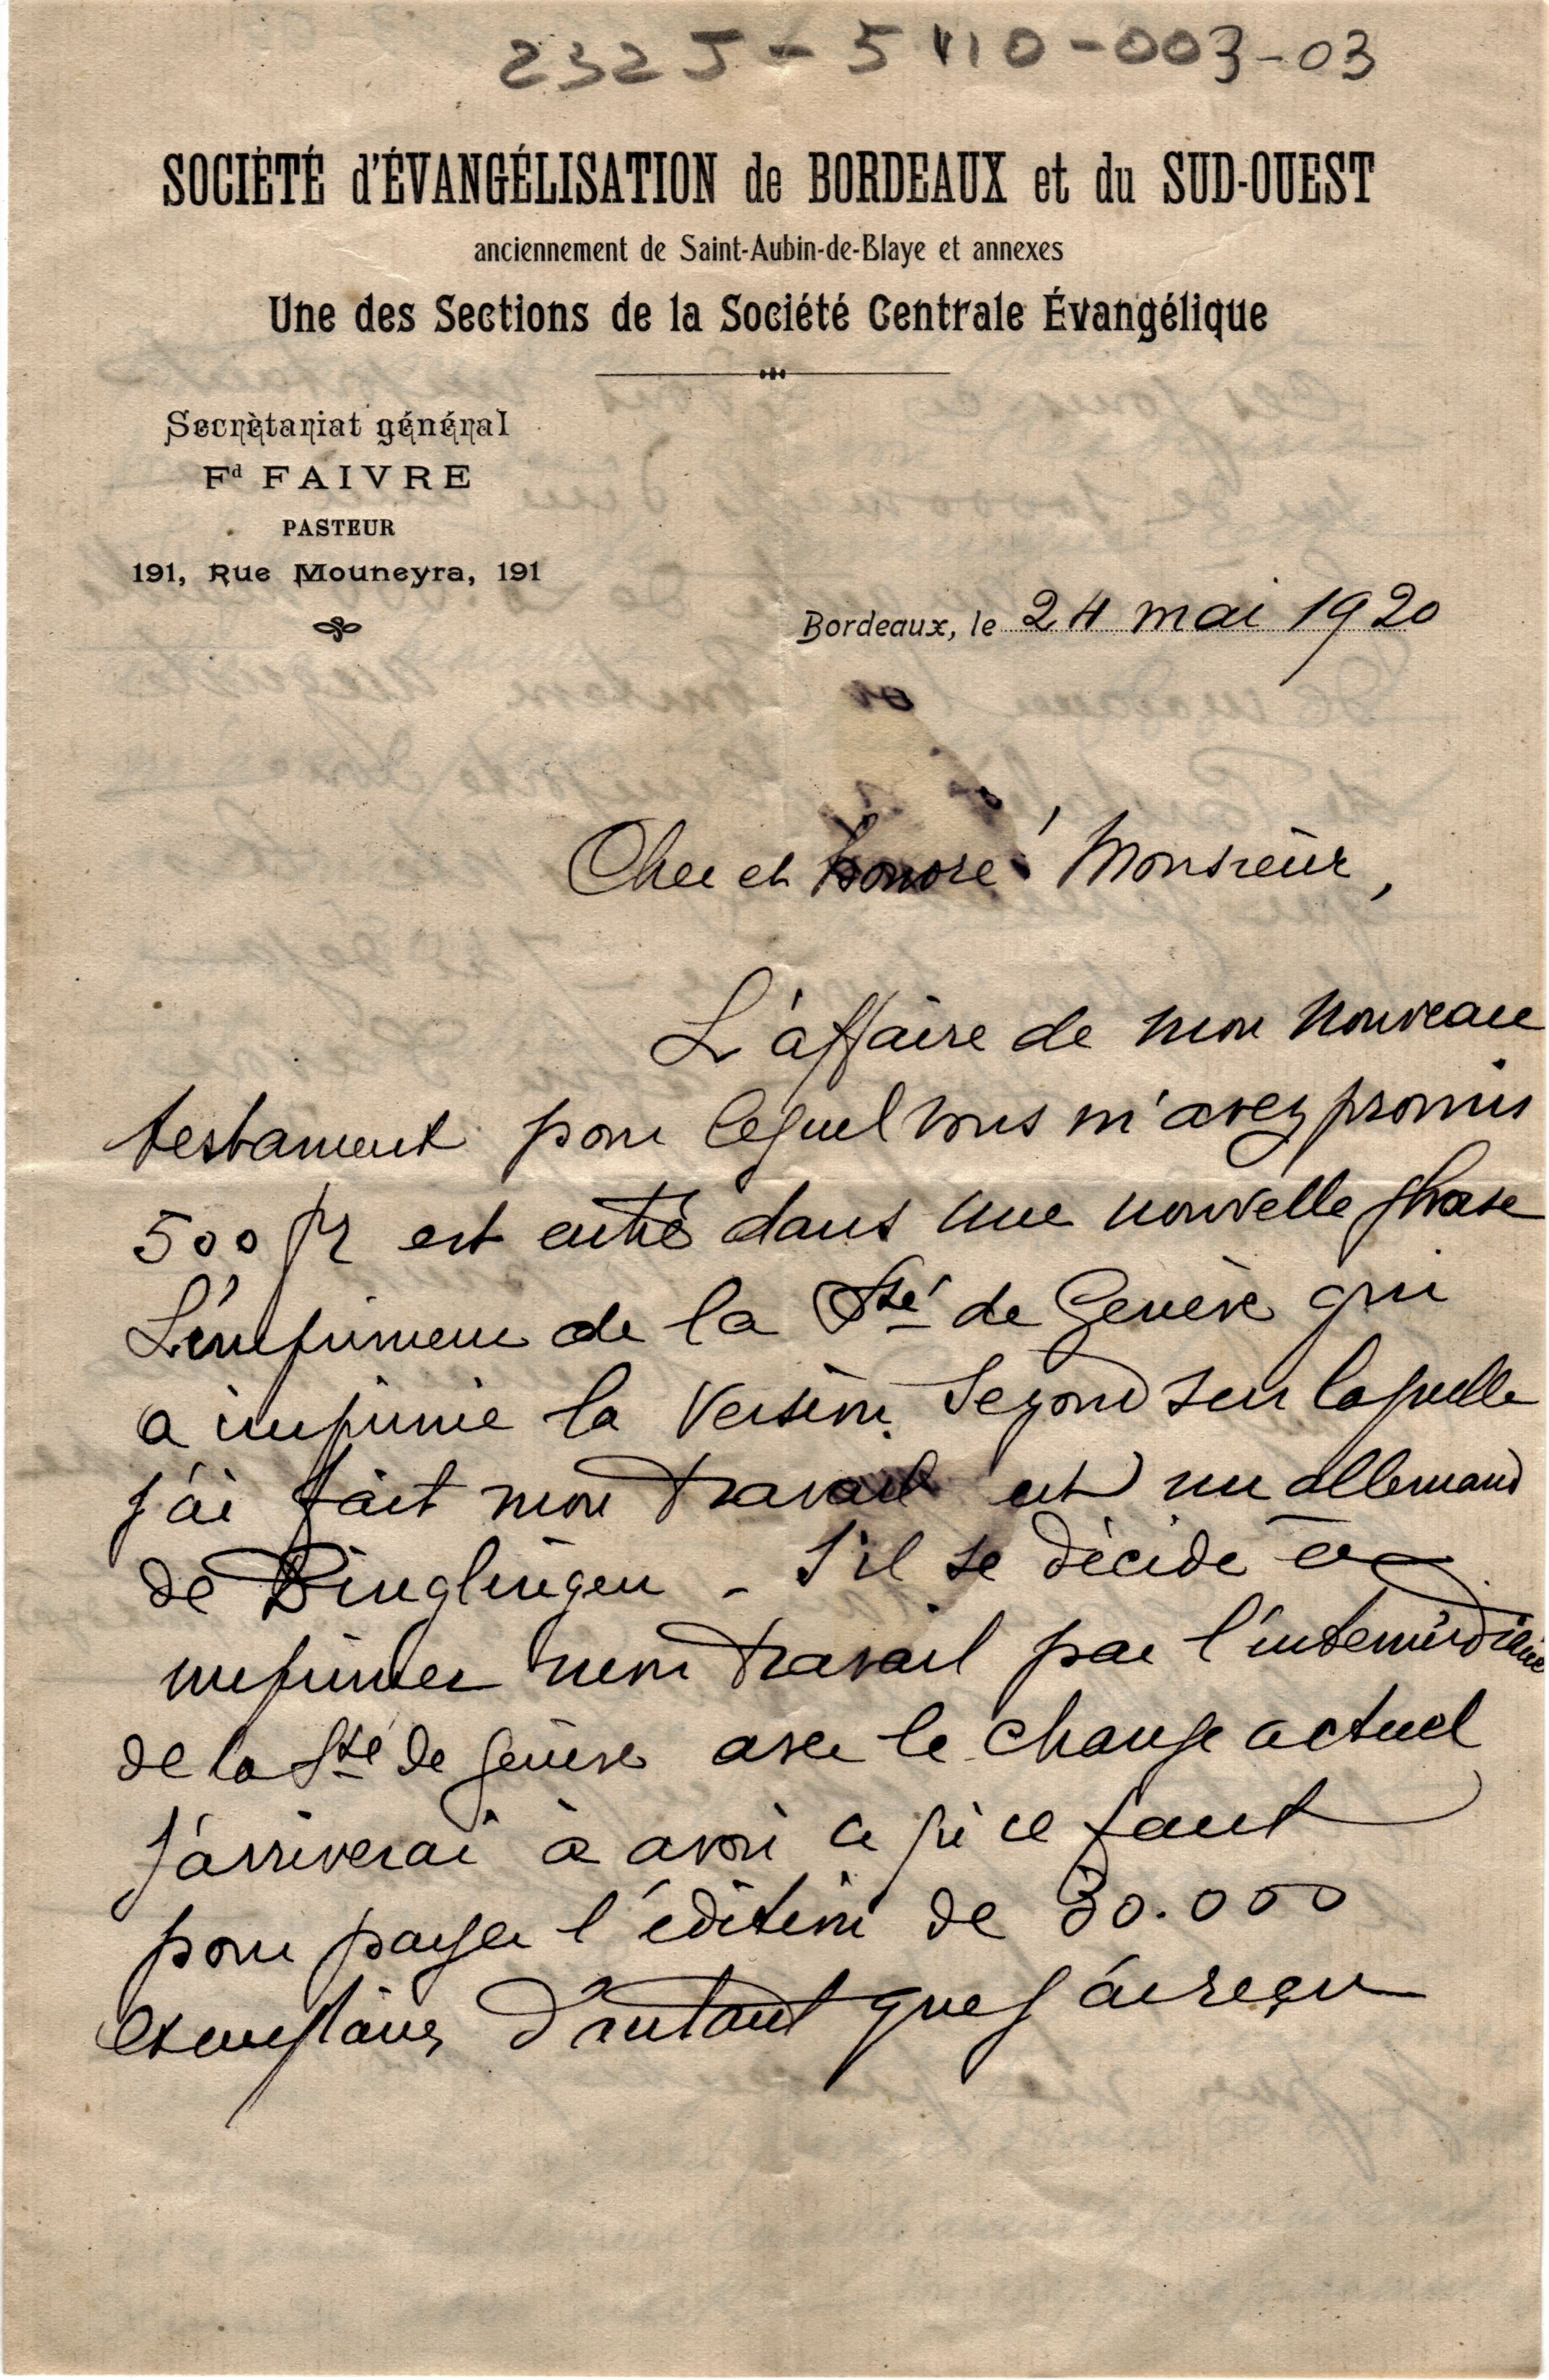 2325 - 5410 - 003 - 03
SOCIÉTÉ d'ÉVANGÉLISATION de BORDEAUX et du SUD-OUEST
anciennement de Saint-Aubin-de-Blaye et annexes
Une des Sections de la Société Centrale Évangélique
Secrètariat général
Fd FAIVRE
PASTEUR
191, Rue Mouneyra, 191
Bordeaux, le 24 mai 1920
Cher et honoré Monsieur,
L'affaire de mon nouveau
testament pour lequel vous m'avez promis
500 fr est entré dans une nouvelle phase
L'imprimeur de la Sté de Genève qui
a imprimé la Version Segond sur laquelle
j'ai fait mon travail est un allemand
de Dinglingen - S'il se décide à
imprimer mon travail par l'intermédiaire
de la Sté de Genève avec le change actuel
j'arriverai à avoir ce qu'il faut
pour payer l'édition de 30.000
exemplaires d'autant que j'ai reçu